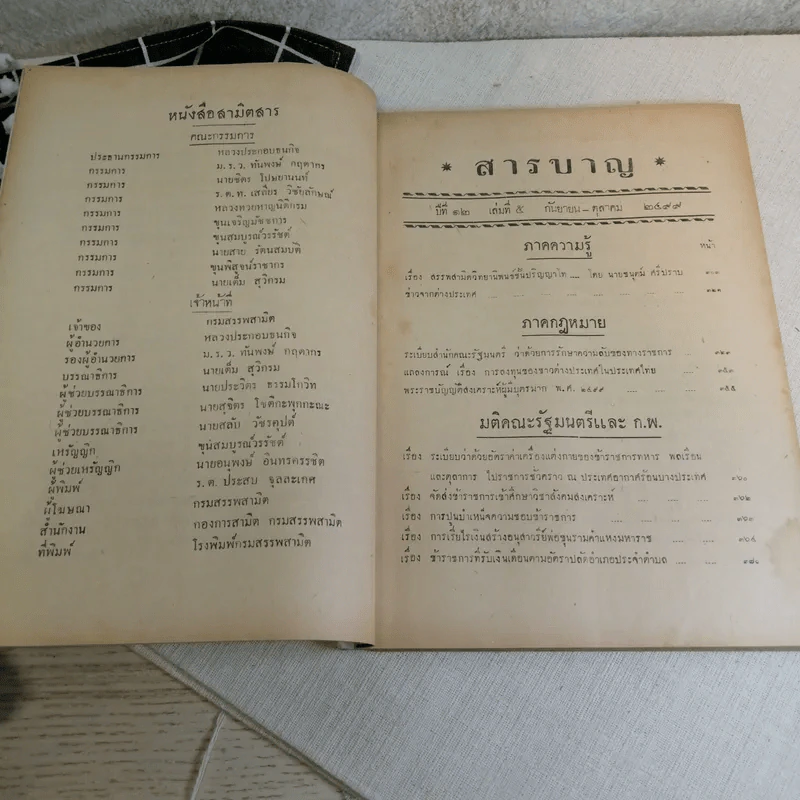 หนังสือสามิตสาร
คณะกรรมการ
ประธานกรรมการ หลวงประกอบธนกิจ
กรรมการ ม.ร.ว. ทันพงษ์ กฤดากร
กรรมการ นายชิตร โปษยานนท์
กรรมการ ร.ต.ท. เสถียร วิชัยลักษณ์
กรรมการ หลวงทวยหาญนิติกรม
กรรมการ ขุนเจริญมัชชการ
กรรมการ ขุนสมบูรณ์วรรัชต์
กรรมการ นายสาย รัตนสมบัติ
กรรมการ ขุนพิสูจน์ราชากร
กรรมการ นายเต็ม สุวิกรม
เจ้าหน้าที่
เจ้าของ กรมสรรพสามิต
ผู้อำนวยการ หลวงประกอบธนกิจ
รองผู้อำนวยการ ม.ร.ว. ทันพงษ์ กฤดากร
บรรณาธิการ นายเต็ม สุวิกรม
ผู้ช่วยบรรณาธิการ นายประวิตร ธรรมโกวิท
ผู้ช่วยบรรณาธิการ นายสุจิตร โชติกะพุกกะณะ
ผู้ช่วยบรรณาธิการ นายสลับ วัชรคุปต์
เหรัญญิก ขุนสมบูรณ์วรรัชต์
ผู้ช่วยเหรัญญิก นายอนุพงษ์ อินทรครรชิต
ผู้พิมพ์ ร.ต. ประสบ จุลละเกศ
ผู้โฆษณา กรมสรรพสามิต
สำนักงาน กองการสามิต กรมสรรพสามิต
ที่พิมพ์ โรงพิมพ์กรมสรรพสามิต
* สารบาญ *
ปีที่ ๑๒ เล่มที่ ๕ กันยายน - ตุลาคม ๒๔๙๙
ภาคความรู้ หน้า
เรื่อง สรรพสามิตวิทยานิพนธ์ชั้นปริญญาโท .... โดย นายชนุตม์ ศรีปราบ
ข่าวจากต่างประเทศ .... .... .... ....
ภาคกฎหมาย
ระเบียบสำนักคณะรัฐมนตรี ว่าด้วยการรักษาความลับของทางราชการ .. ๓๒๓
แถลงการณ์ เรื่อง การลงทุนของชาวต่างประเทศในประเทศไทย .... ๓๕๓
พระราชบัญญัติสงเคราะห์ผู้มีบุตรมาก พ.ศ. ๒๔๙๙ .... .... ๓๕๕
มติคณะรัฐมนตรีและ ก.พ.
เรื่อง ระเบียบว่าด้วยอัตราค่าเครื่องแต่งกายของข้าราชการทหาร พลเรือน
และตุลาการ ไปราชการชั่วคราว ณ ประเทศอากาศร้อนบางประเทศ ๓๖๐
เรื่อง จัดส่งข้าราชการเข้าศึกษาวิชาสังคมสงเคราะห์ .... .... .... ๓๖๒
เรื่อง การปูนบำเหน็จความชอบข้าราชการ .... .... .... ๓๖๓
เรื่อง การเรี่ยไรเงินสร้างอนุสาวรีย์พ่อขุนรามคำแหงมหาราช .... .... ๓๖๔
เรื่อง ข้าราชการที่รับเงินเดือนตามอัตราปลัดอำเภอประจำตำบล .... ....